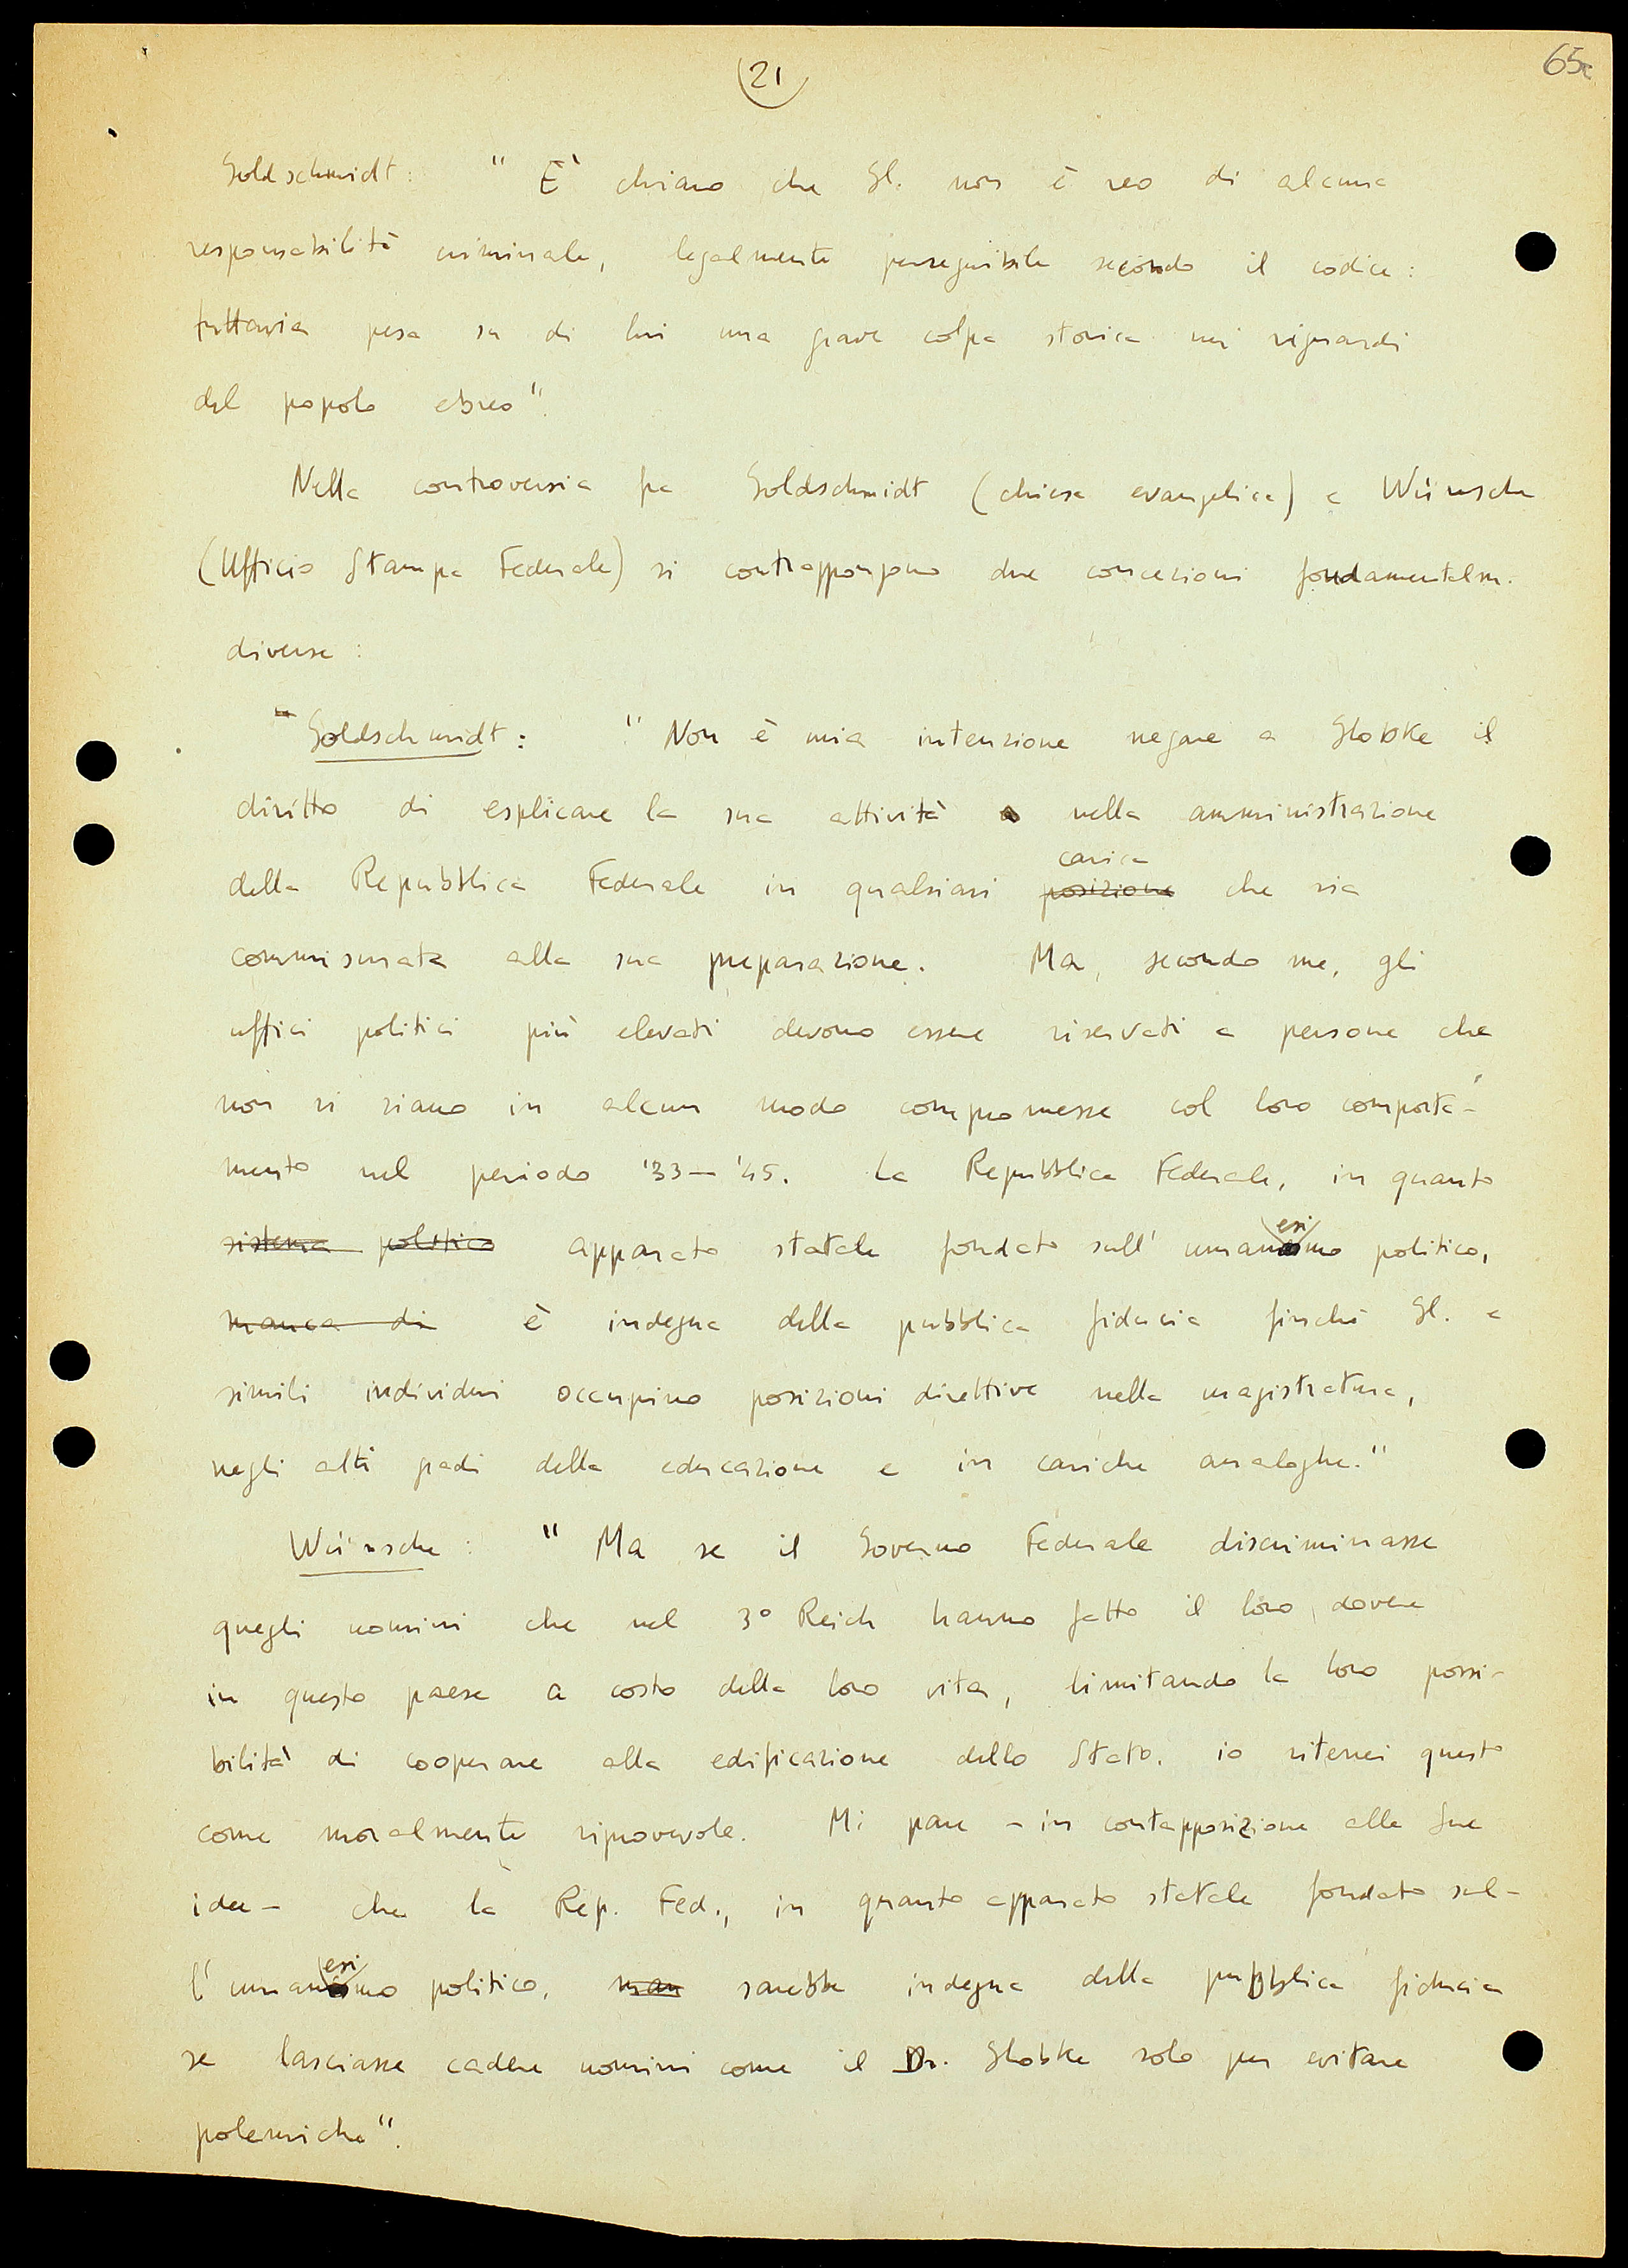 21
65r
Goldschmidt: " È chiaro che Gl. non è reo di alcuna
responsabilità criminale, legalmente perseguibile secondo il codice:
tuttavia pesa su di lui una grave colpa storica nei riguardi
del popolo ebreo".
Nella controversia fra Goldschmidt (chiesa evangelica) e Wünsche
(Ufficio Stampa Federale) si contrappongono due concezioni fondamentalm.
diverse:
Goldschmidt: " Non è mia intenzione negare a Globke il
diritto di esplicare la sua attività nella amministrazione
carica
della Repubblica Federale in qualsiasi posizione che sia
commisurata alla sua preparazione. Ma, secondo me, gli
uffici politici più elevati devono essere riservati a persone che
non si siano in alcun modo compromesse col loro comporta-
mento nel periodo '33-'45. La Repubblica Federale, in quanto
esi
sistema politico apparato statale fondato sull' umanesimo politico,
manca di è indegna della pubblica fiducia finché Gl. e
simili individui occupino posizioni direttive nella magistratura,
negli alti gradi della educazione e in cariche analoghe."
Wünsche: " Ma se il Governo Federale discriminasse
quegli uomini che nel 3° Reich hanno fatto il loro dovere
in questo paese a costo della loro vita, limitando la loro possi-
bilità di cooperare alla edificazione dello Stato. io riterrei questo
come moralmente riprovevole. Mi pare - in contapposizione alle Sue
idee - che la Rep. Fed., in quanto apparato statale fondato sul-
esi
l'umanesimo politico, man sarebbe indegna della pubblica fiducia
se lasciasse cadere uomini come il Dr. Globke solo per evitare
polemiche".